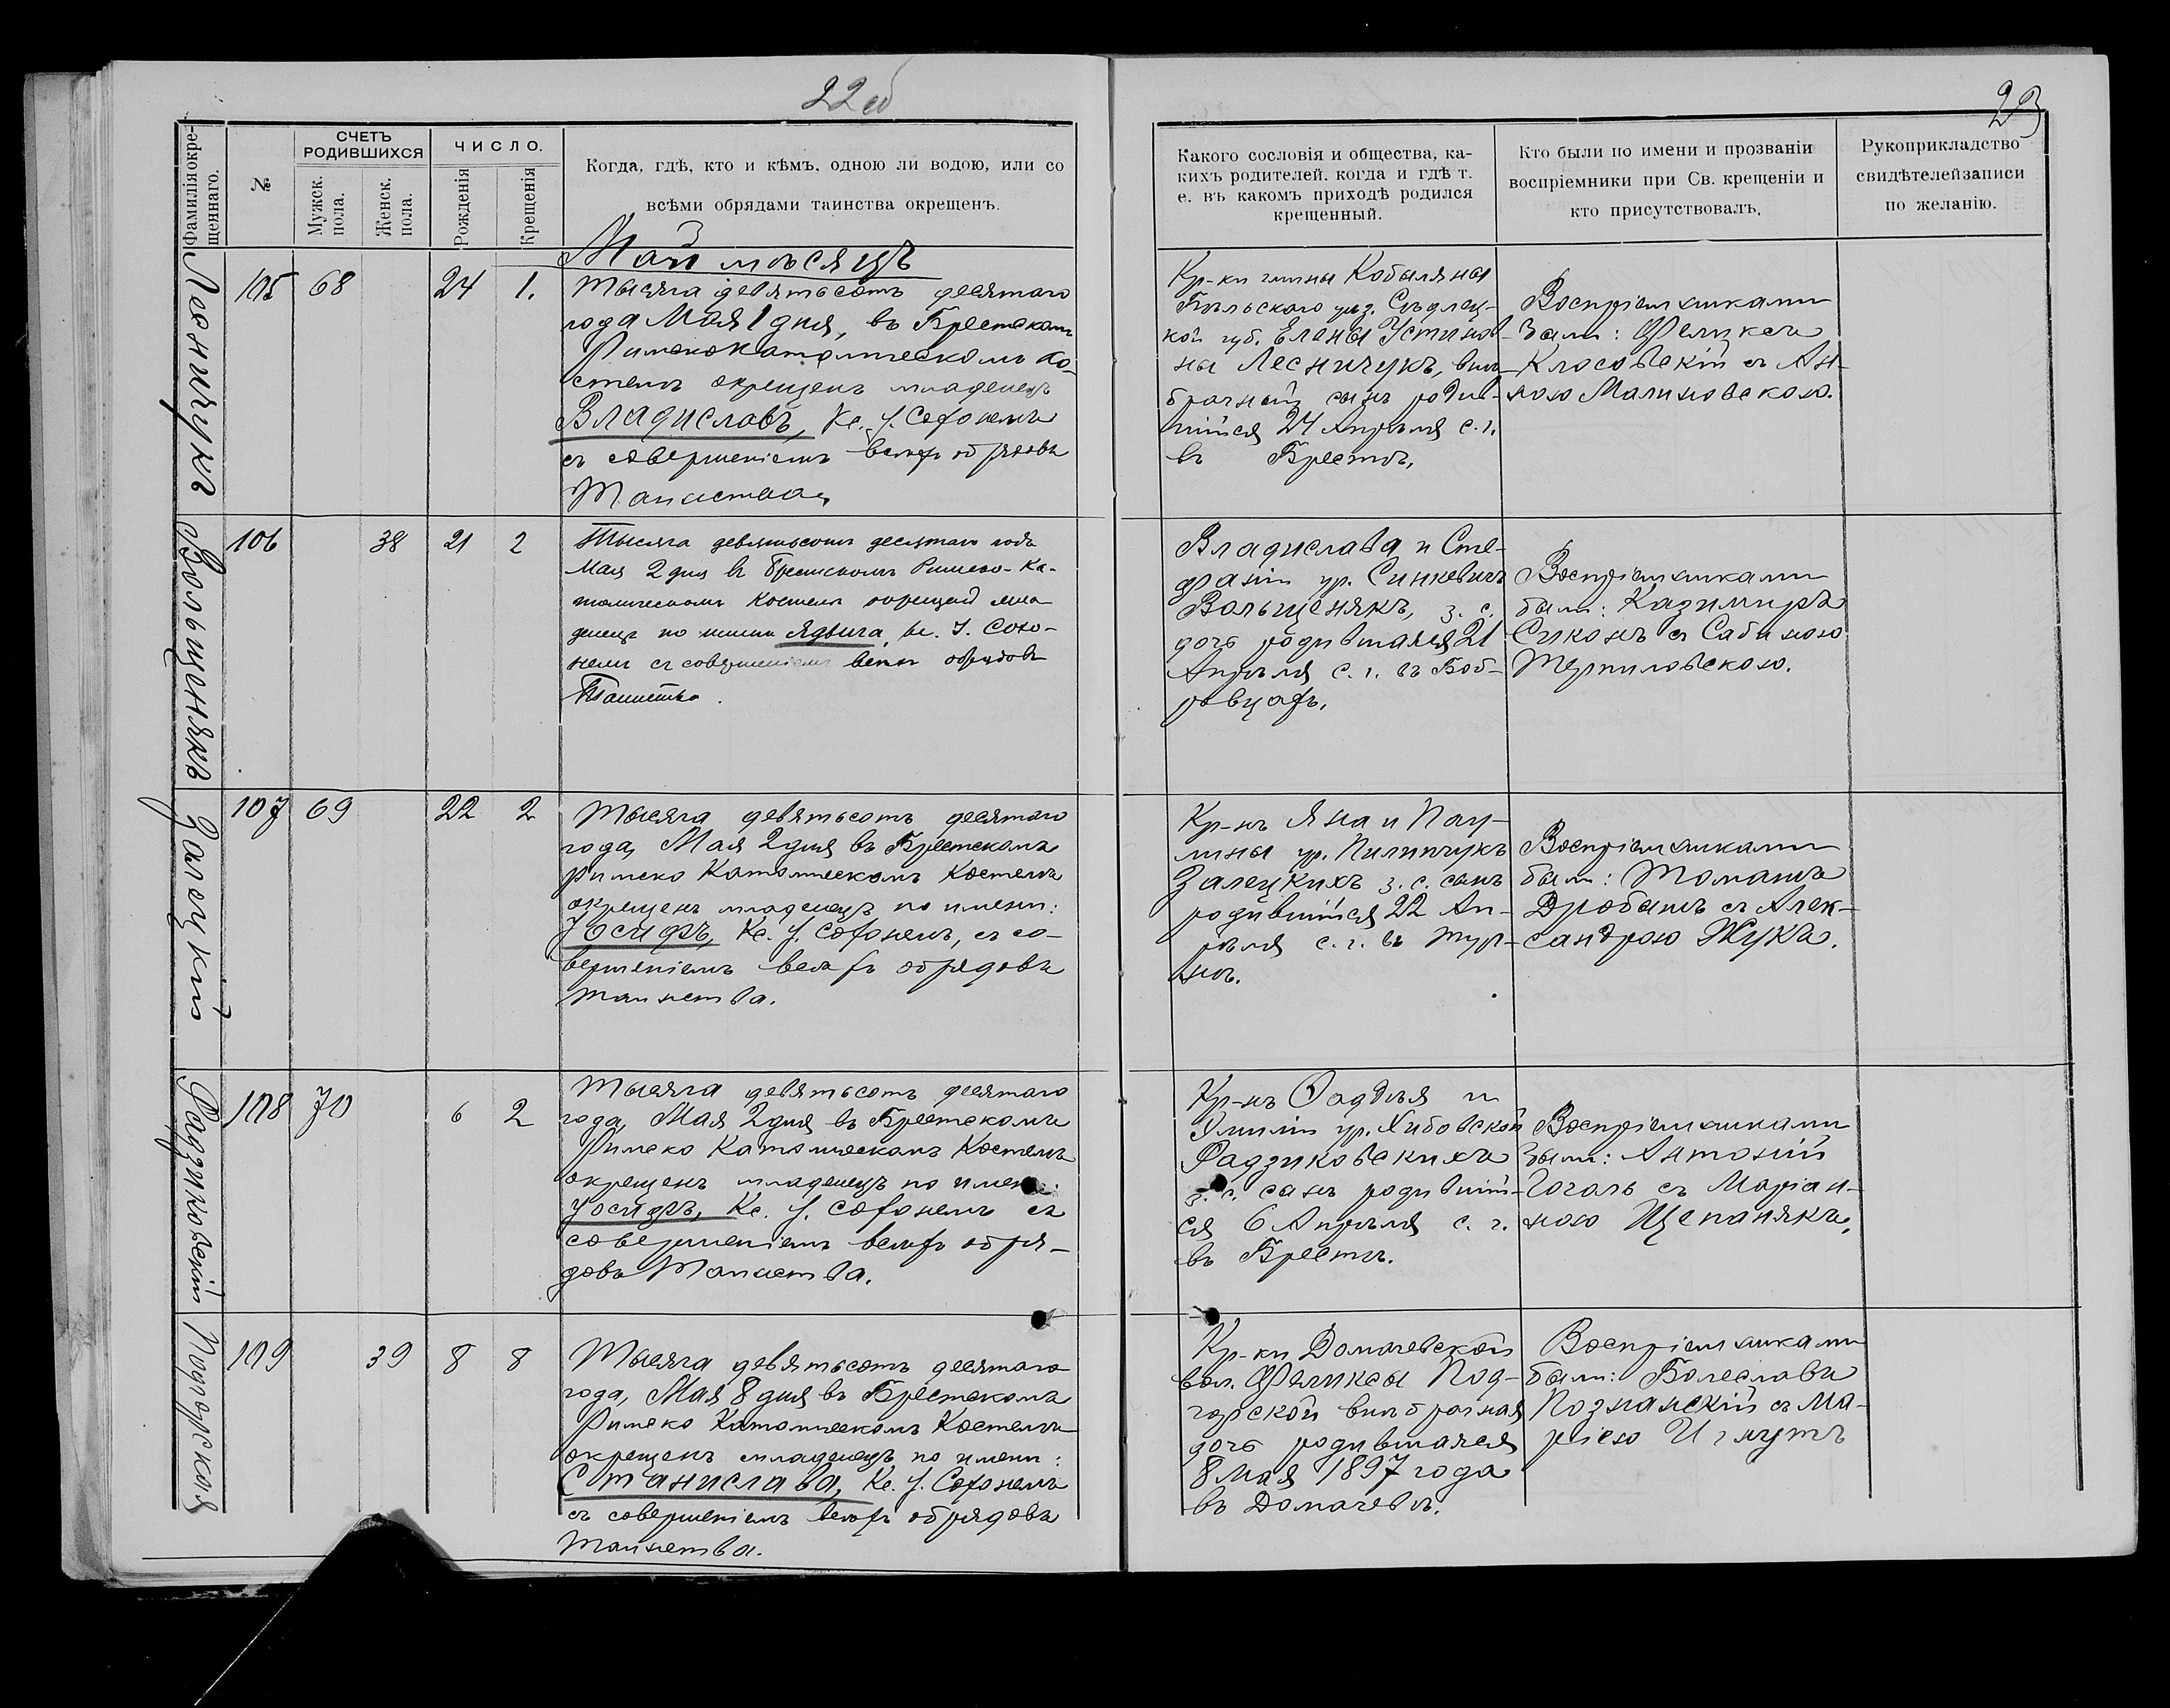 22об
23
Фамилія окре-
щеннаго.
№
СЧЕТЪ
РОДИВШИХСЯ
Мужск.
пола.
Женск.
пола.
ЧИСЛО.
Рожденія
Крещенія
Когда, гдѣ, кто и кѣмъ, одною ли водою, или со
всѣми обрядами таинства окрещенъ.
Какого сословія и общества, ка-
кихъ родителей. когда и гдѣ т.
е. въ какомъ приходѣ родился
крещенный.
Кто были по имени и прозванію
воспріемники при Св. крещеніи и
кто присутствовалъ.
Рукоприкладство
свидѣтелей записи
по желанію.
Май мѣсяцъ
Лесничукъ
105 68 24 1.
Тысяча девятьсотъ десятаго
года Мая 1 дня, въ Брестскомъ
Римско Католическомъ Ко-
стелѣ окрещенъ младенецъ
Владиславъ, Кс. І.
съ совершеніемъ всѣхъ обрядовъ
Таинства,
Кр-ки гмины Кобыляны
Бѣльскаго уѣз. Сѣдлец-
кой губ. Елены Устинов-
ны Лесничукъ, внѣ-
брачный сынъ родив-
шійся 24 Апрѣля с. г.
въ Брестѣ.
Воспріемниками
были: Феликсъ
Клосовскій съ Ан-
ною Малиновскою.
Вольщенякъ
106 38 21 2
Тысяча девятьсотъ десятаго года
Мая 2 дня въ Брестскомъ Римско-Ка-
толическомъ Костелѣ окрещенъ мла-
денецъ по имени Ядвига, Кс. І.
съ совершеніемъ всѣхъ обрядовъ
Таинства.
Владислава и Сте-
фаніи ур. Синкевичъ
Вольщенякъ, з. с.
дочь родившаяся 21
Апрѣля с. г. въ Боб-
ровцахъ.
Воспріемниками
были: Казимиръ
Сиконъ съ Сабиною
Терпиловскою.
Залецкій
107 69 22 2
Тысяча девятьсотъ десятаго
года, Мая 2 дня въ Брестскомъ
Римско Католическомъ Костелѣ
окрещенъ младенецъ по имени:
Іосифъ, Кс. І. съ со-
вершеніемъ всѣхъ обрядовъ
таинства.
Кр-нъ Яна и Пау-
лины ур. Пилипчукъ
Залецкихъ з. с. сынъ
родившійся 22 Ап-
рѣля с. г. въ Тур-
нѣ.
Воспріемниками
были: Томашъ
Дробашъ съ Алек-
сандрою Жукъ.
Радзиковскій
108 70 6 2
Тысяча девятьсотъ десятаго
года, Мая 2 дня въ Брестскомъ
Римско Католическомъ Костелѣ
окрещенъ младенецъ по имени:
Іосифъ, Кс. І. съ
совершеніемъ всѣхъ обря-
довъ Таинства.
Кр-нъ Фаддѣя и
Эмиліи ур. Хибовской
Радзиковскихъ
з. с. сынъ родивші-
ся 6 Апрѣля с. г.
въ Брестѣ.
Воспріемниками
были: Антоній
Гоголь съ Маріан-
ною Щепанякъ.
Подгорская
109 39 8 8
Тысяча девятьсотъ десятаго
года, Мая 8 дня въ Брестскомъ
Римско Католическомъ Костелѣ
окрещенъ младенецъ по имени:
Станислава, Кс. І.
съ совершеніемъ всѣхъ обрядовъ
таинства.
Кр-ки Домачевской
вол. Феликсы Под-
горской внѣбрачная
дочь родившаяся
8 Мая 1897 года
въ Домачевѣ.
Воспріемниками
были: Болеславъ
Познанскій съ Ма-
ріею Игнутъ